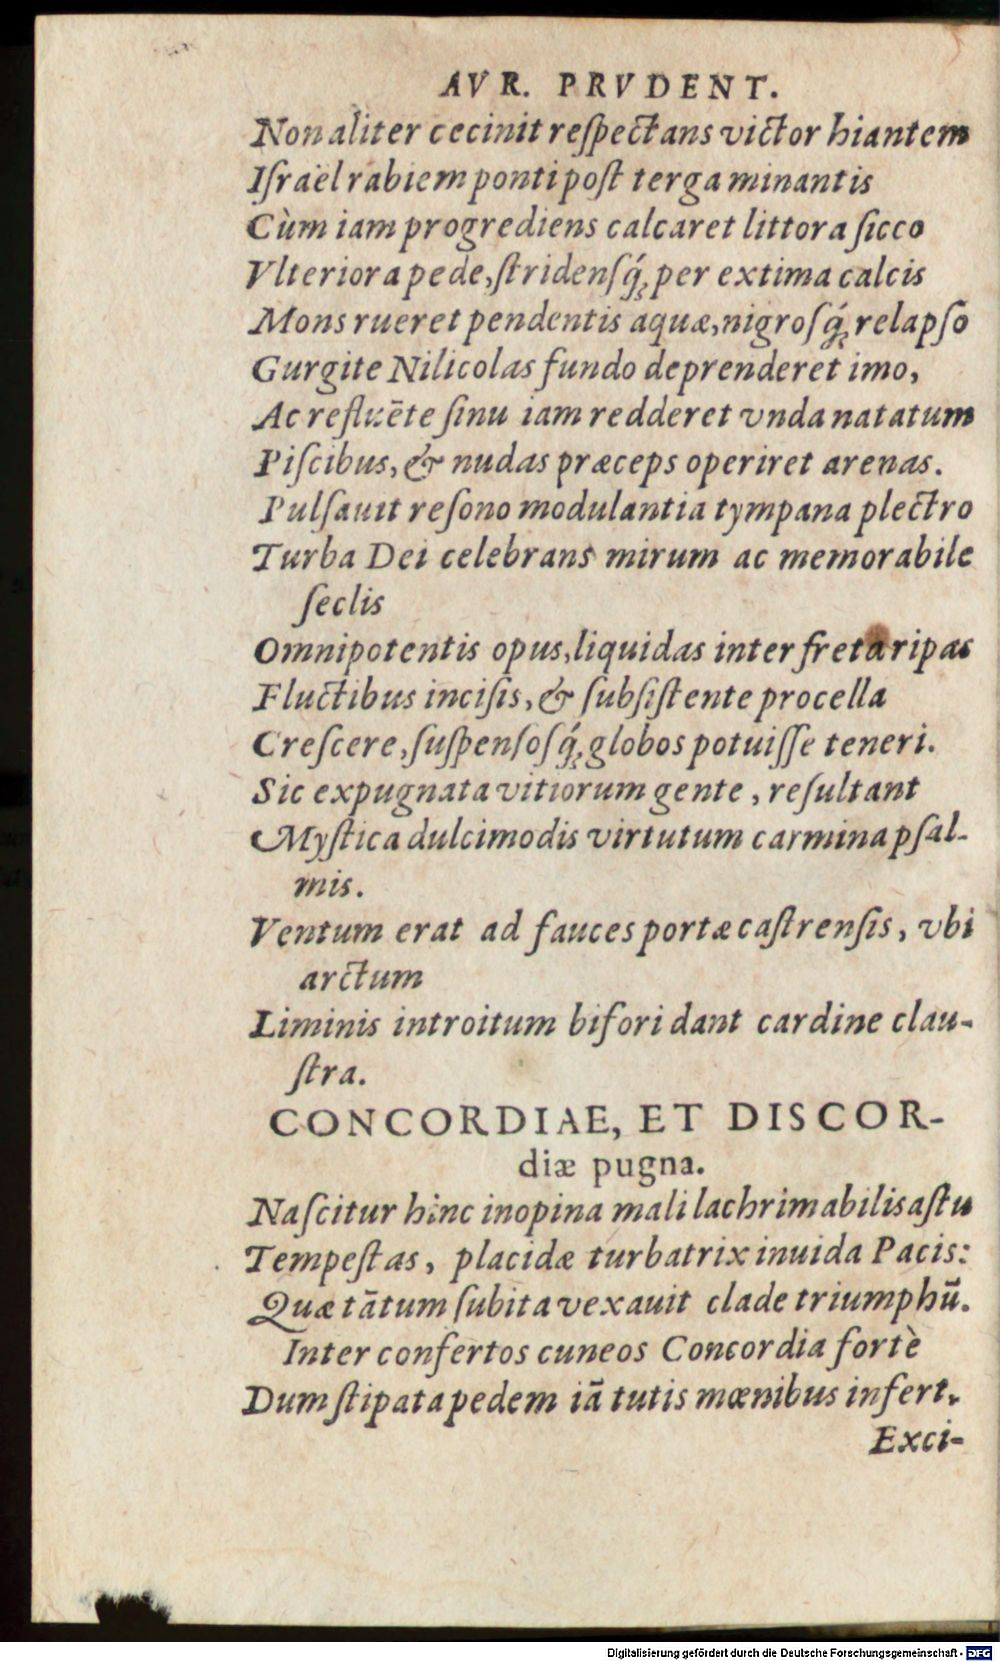 AVR. PRVDENT.
Non aliter cecinit reſpectans victor hiantem
Iſraël rabiem ponti poſt terga minantis
Cùm iam progrediens calcaret littora ſicco
Vlteriora pede, ſtridenſq́ꝫ per extima calcis
Mons rueret pendentis aquæ, nigroſq́ꝫ relapſo
Gurgite Nilicolas fundo deprenderet imo,
Ac refluẽte ſinu iam redderet vnda natatum
Piſcibus, & nudas præceps operiret arenas.
Pulſauit reſono modulantia tympana plectro
Turba Dei celebrans mirum ac memorabile
ſeclis
Omnipotentis opus, liquidas inter freta ripas
Fluctibus inciſis, & ſubſiſtente procella
Creſcere, ſuſpenſoſq́ꝫ globos potuiſſe teneri.
Sic expugnata vitiorum gente, reſultant
Myſtica dulcimodis virtutum carmina pſal-
mis.
Ventum erat ad fauces portæ caſtrenſis, vbi
arctum
Liminis introitum bifori dant cardine clau-
ſtra.
CONCORDIAE, ET DISCOR-
diæ pugna.
Naſcitur hinc inopina mali lachrimabilis aſtu
Tempeſtas, placidæ turbatrix inuida Pacis:
Quæ tãtum ſubita vexauit clade triumphũ.
Inter confertos cuneos Concordia fortè
Dum ſtipata pedem iã tutis mœnibus infert,
Exci-
Digitalisierung gefördert durch die Deutsche Forschungsgemeinschaft - DFG